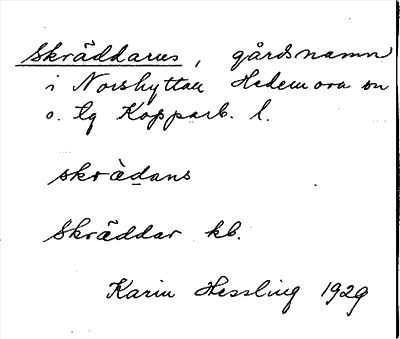 Skräddarns, gårdsnamn
i Norshyttan Hedemora sn
o. tg Kopparb. l.
skrädans
Skräddar kb.
Karin Hessling 1929